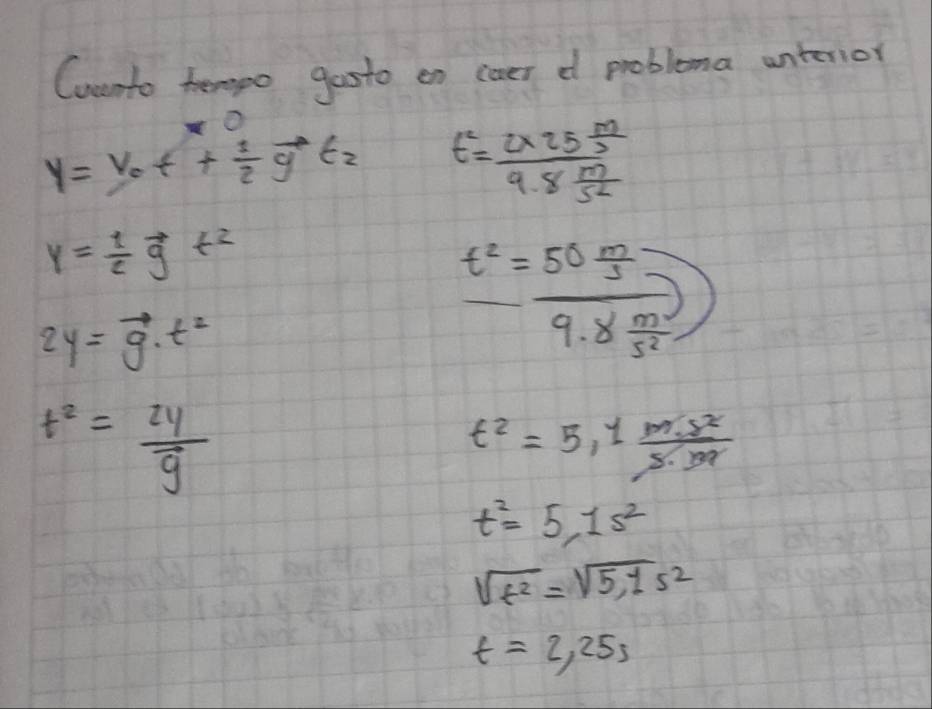 Cuanto tiempo gasto en caer el problema anterior
0
y = v₀ t + 1/2 g⃗ t₂
y = 1/2 g⃗ t²
2y = g⃗ . t²
t² = 2y/g⃗
t² = 2x25 m/s / 9.8 m/s²
t² = 50 m/s / 9.8 m/s²
t² = 5,1 m.s²/s.m
t² = 5,1 s²
√t² = √5,1 s²
t = 2,25s